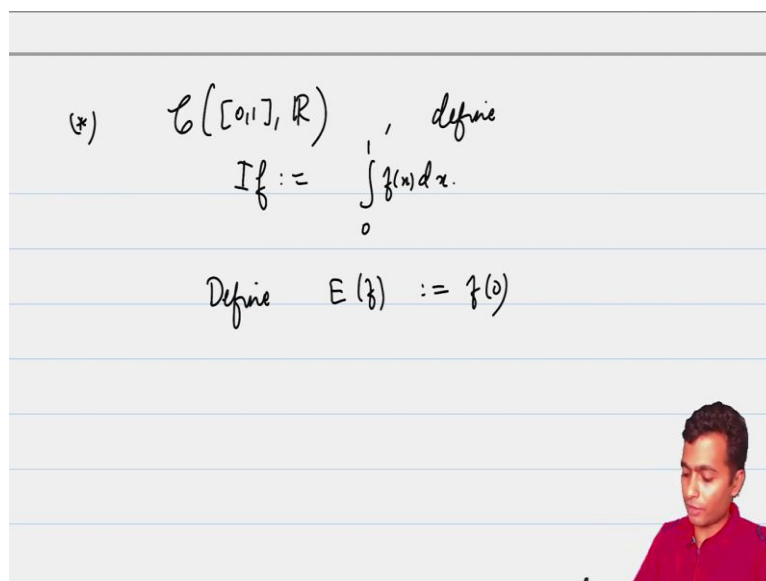 (*) 𝒞([0,1], ℝ) , define
If := ∫₀¹ f(x) dx.
Define E(f) := f(0)